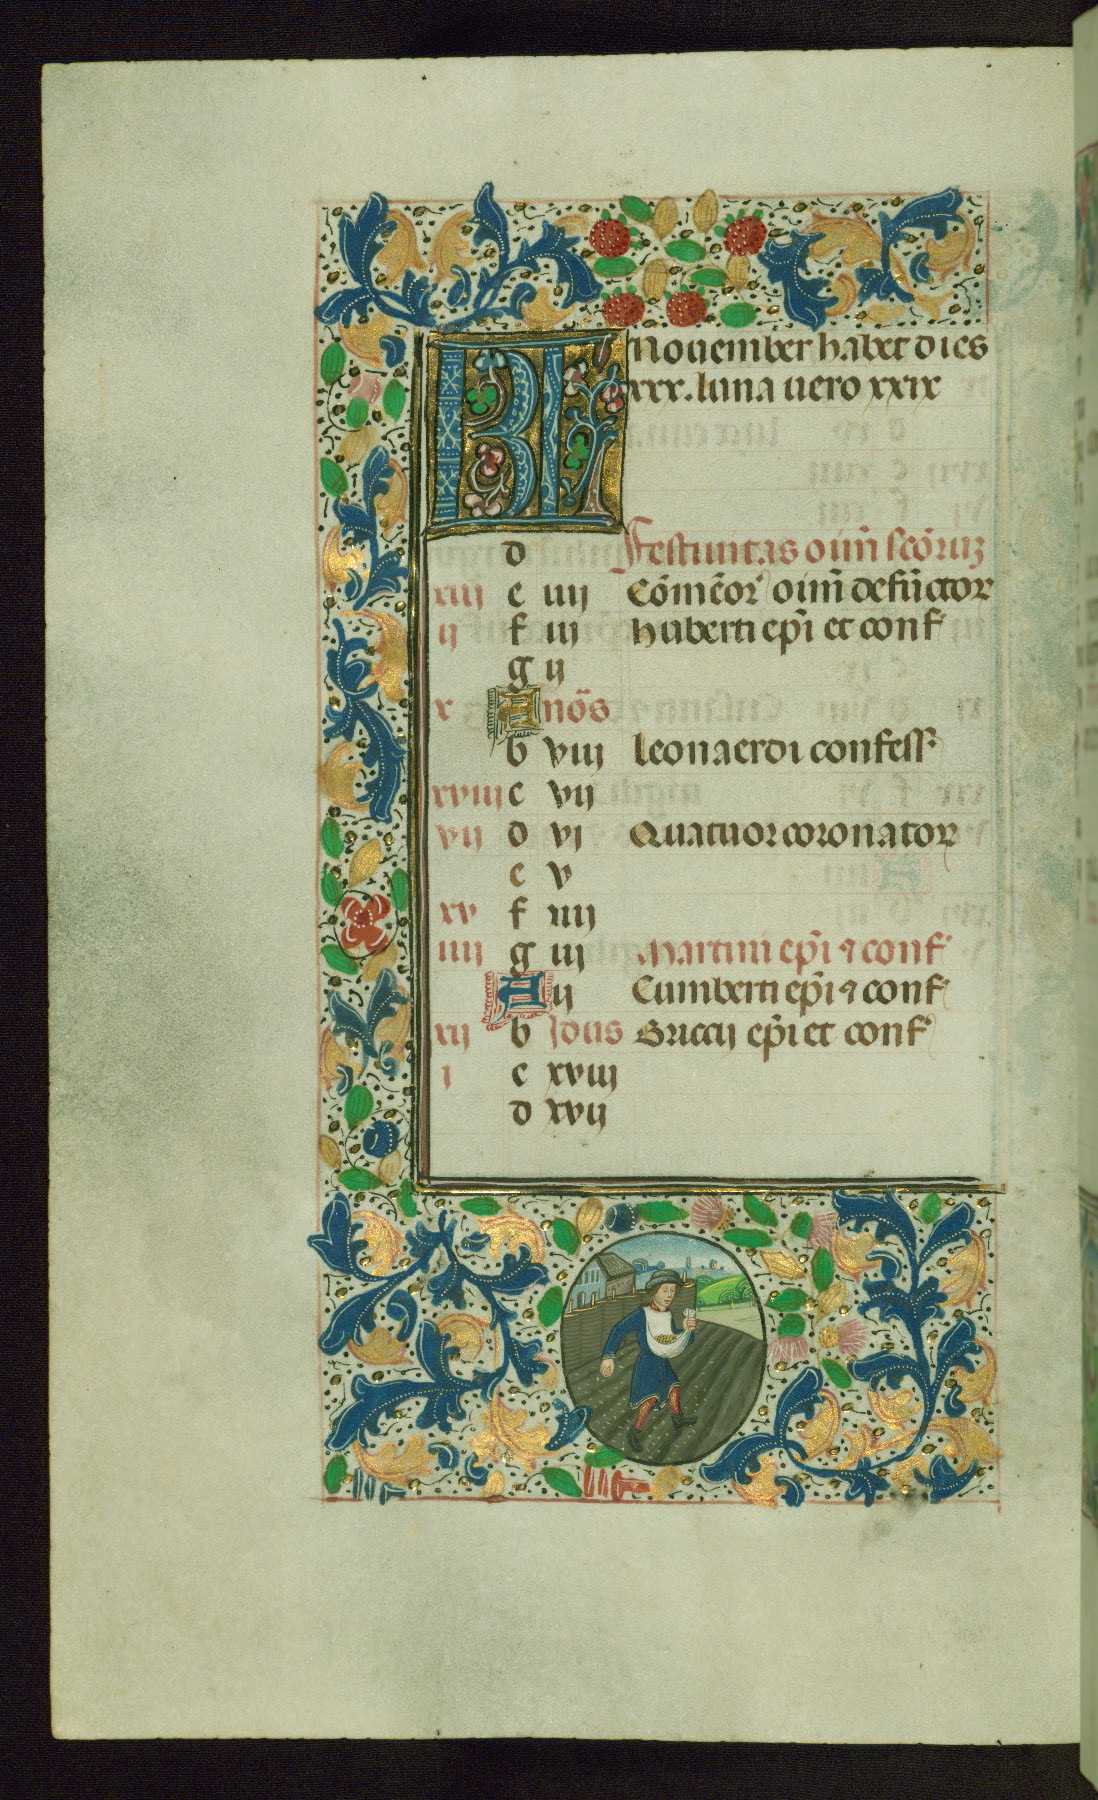 KL November habet dies
xxx. luna uero xxix
d Festiuitas oim̄ scōruꝫ
xiij e iiij Cōmēor oim̄ defūctor
ij f iij Huberti ep̄i et conf
g ij
x A nōs
b viij leonaerdi confess
xviij c vij
vij d vj Quatuor coronator
e v
xv f iiij
iiij g iij Martini ep̄i ⁊ conf
A ij Cumberti ep̄i ⁊ conf
xij b Idus Briccij ep̄i et conf
j c xviij
d xvij